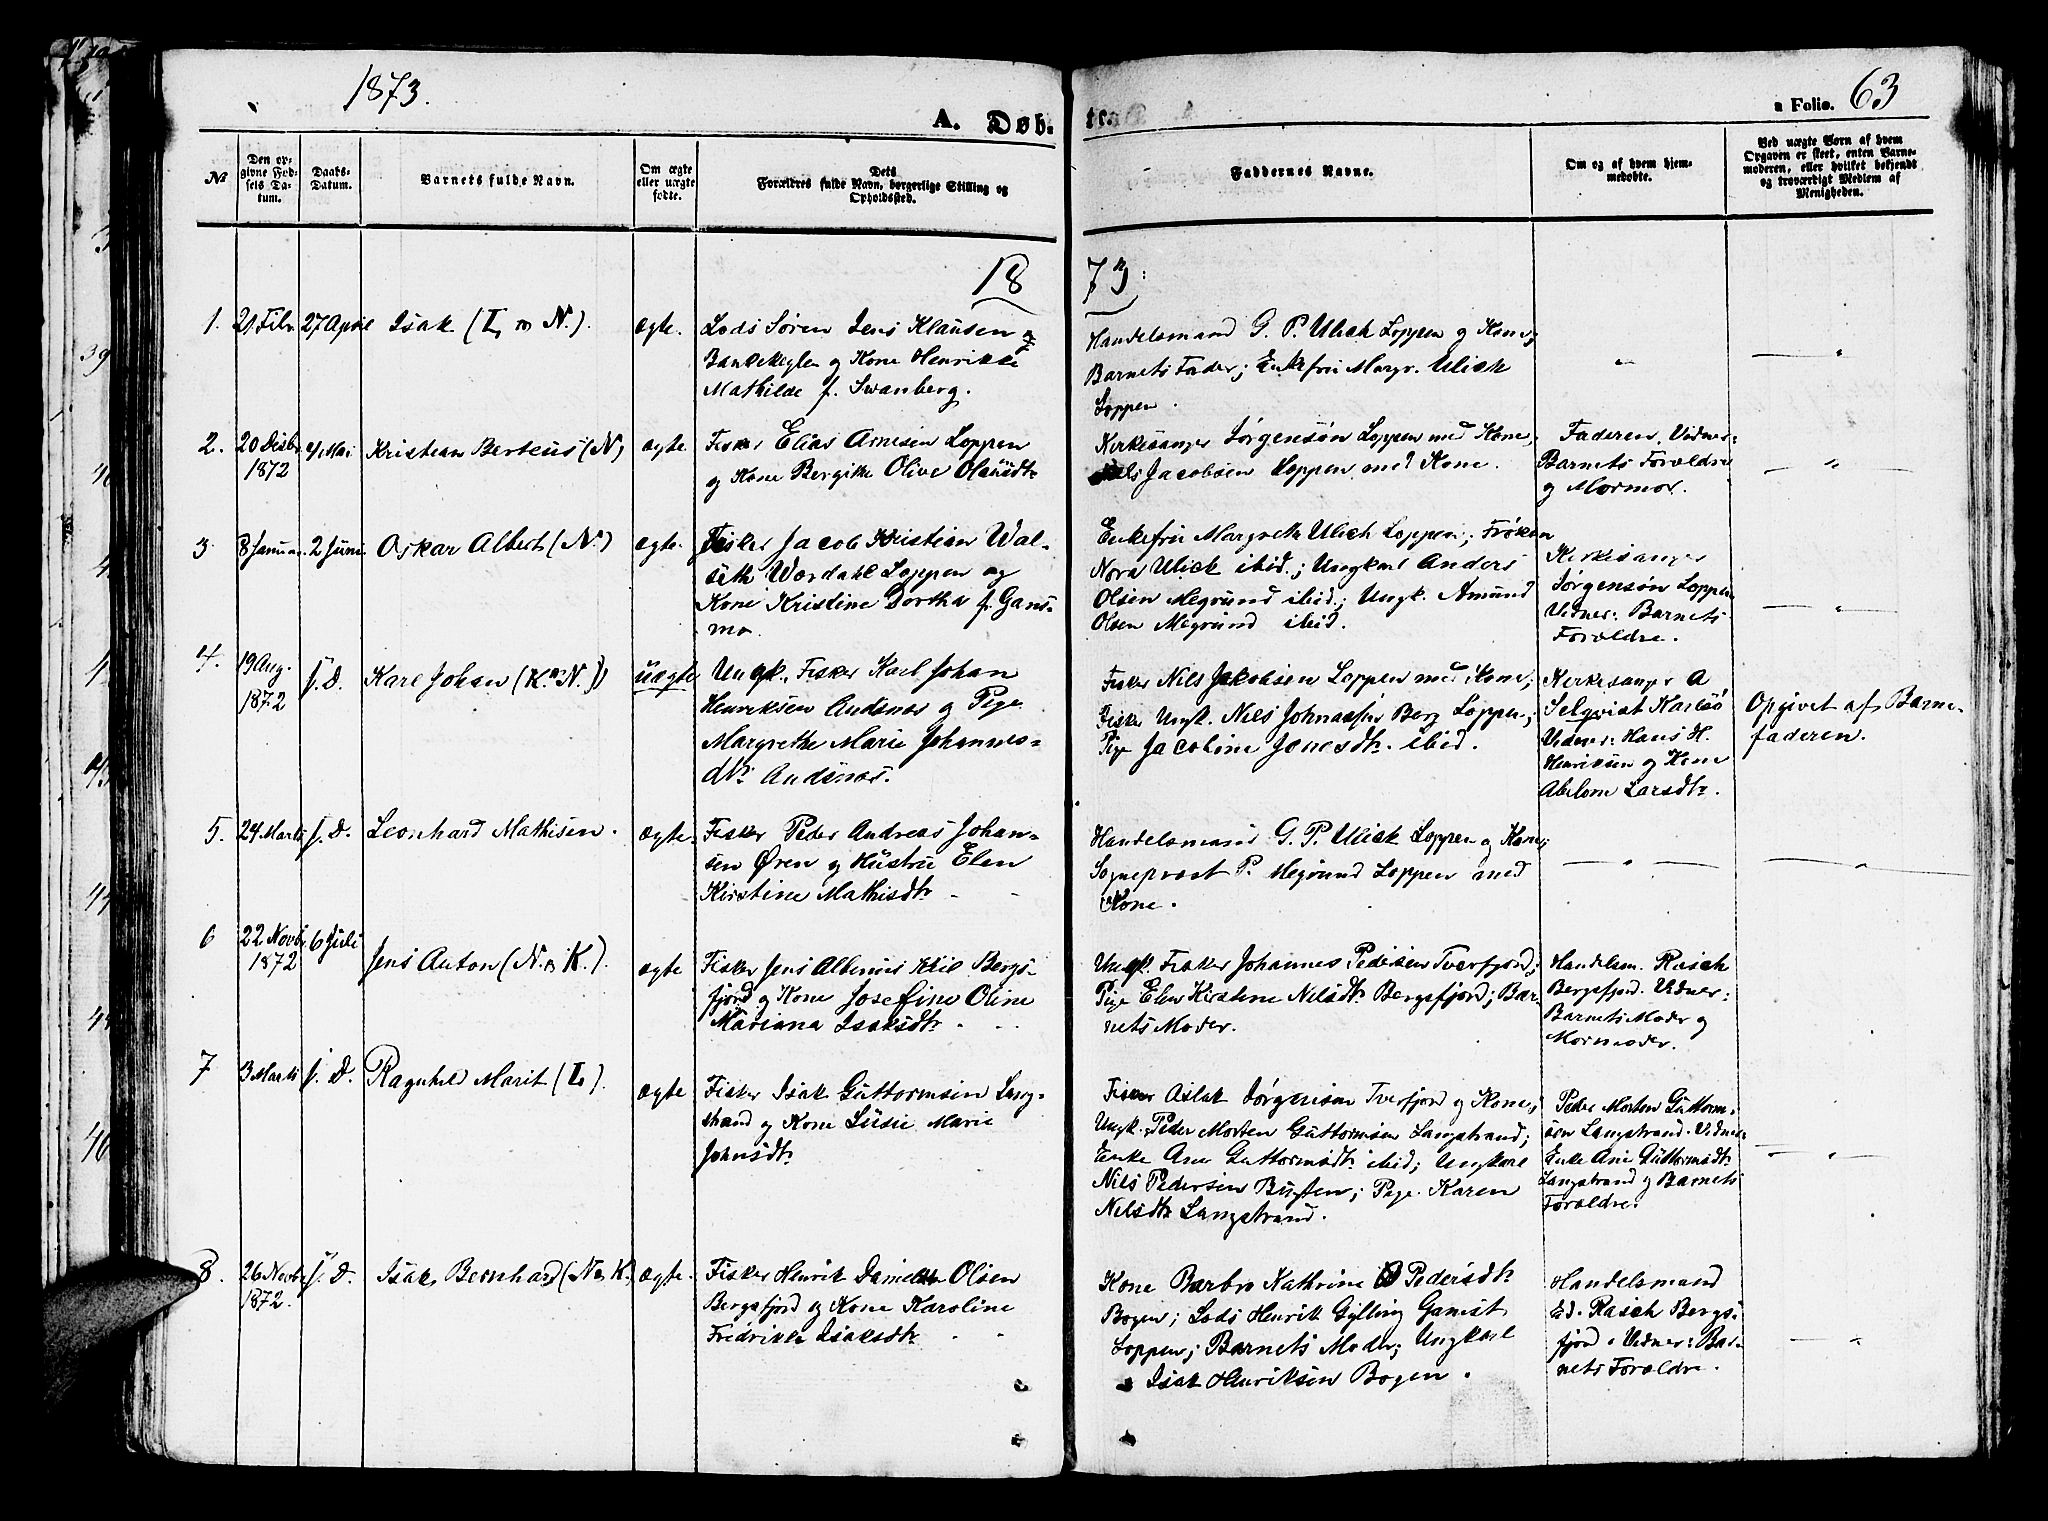 1873.
A. Døb-
a Folio. 63
№
Den op-
givne Fød-
sels Da-
tum.
Daabs-
Datum.
Barnets fulde Navn.
Om ægte
eller uægte
fødte.
Dets
Forældres fulde Navn, borgerlige Stilling og
Opholdssted.
Faddernes Navne.
Om og af hvem hjem-
medøbte.
Ved uægte Børn af hvem
Opgaven er skeet, enten Barne-
moderen, eller hvilket bekjendt
og troværdigt Medlem af
Menigheden.
18
73
1.
21 Febr.
27 April
Isak (L. og N.).
ægte.
Lods Søren Jens Klausen
og Kone Henrikke
Mathilde f. Swanberg.
Handelsmand G. P. Ulich Loppen og Kone;
Barnets Fader; Enkefru Margr. Ulich
Loppen.
— " —
2.
20 Desbr.
1872
4 Mai
Kristian Berteus (N)
ægte.
Fisker Elias Arnesen Loppen
og Kone Bergitte Olive Olausdtr
Kirkesanger Jørgensøn Loppen med Kone,
Nils Jacobsen Loppen med Kone.
Faderen. Vidner:
Barnets Forældre
og Mormor.
— " —
3.
8 Januar
2 Juni
Oskar Albert (N.)
ægte.
Fisker Jacob Kristian Wal-
seth Værdahl Loppen og
Kone Kristine Dorthea f. Gans-
mo.
Enkefru Margrethe Ulich Loppen; Frøken
Nora Ulich ibid.; Ungkarl Anders
Olsen Megrund ibid.; Ungk. Amund
Olsen Megrund ibid.
Kirkesanger
Jørgensøn Loppen
Vidner: Barnets
Forældre.
— " —
4.
19 Aug.
1872
s. D.
Karl Johan (K. og N.)
uægte
Ungk. Fisker Karl Johan
Henriksen Andsnæs og Pige
Margrethe Marie Johannes-
dtr. Andsnæs.
Fisker Nils Jakobsen Loppen med Kone;
Fisker Ungk. Nils Johnassen Berg Loppen;
Pige Jacobine Jonesdtr. ibid.
Kirkesanger A
Selqvist Karlsø
Vidner: Hans H.
Henriksen og Kone
Abelone Larsdtr.
Opgivet af Barne-
faderen.
5.
24. Marts
s. D.
Leonhard Mathisen.
ægte.
Fisker Peder Andreas Johan-
sen Øren og Hustru Elen
Kirstine Mathisdtr.
Handelsmand G. P. Ulich Loppen og Kone;
Sogneprest P. Megrund Loppen med
Kone.
— " —
— " —
6
22 Novbr.
1872
6 Juli
Jens Anton (N. og K.).
ægte
Fisker Jens Albinus Kiil Bergs-
fjord og Kone Josefine Oline
Mariana Isaksdtr.
Ungk. Fisker Johannes Pedersen Tverfjord;
Pige Elen Kirstine Nilsdtr. Bergsfjord; Bar-
nets Moder.
Handelsm. Rasch
Bergsfjord. Vidner:
Barnets Moder og
Mormoder.
7
3 Marts
s. D.
Ragnhild Marit (L.).
ægte
Fisker Isak Guttormsen Lang-
strand og Kone Lusie Marie
Johnsdtr.
Fisker Aslak Jørgensen Tverfjord og Kone;
Ungk. Peder Morten Guttormsen Langstrand;
Enke Ane Guttormsdtr. ibid; Ungkarl
Nils Pedersen Bugten; Pige Karen
Nilsdtr Langstrand.
Peder Morten Guttorm-
sen Langstrand. Vidner:
Enke Ane Guttormsdtr.
Langstrand og Barnets
Forældre.
— " —
8.
26 Novbr.
1872.
s. D.
Isak Bernhard (N. og K.)
ægte.
Fisker Henrik Daniel Olsen
Bergsfjord og Kone Karoline
Fredrikke Isaksdtr.
Kone Barbro Kathrine Pedersdtr.
Bogen; Lods Henrik Gylling Gamst
Loppen; Barnets Moder; Ungkarl
Isak Henriksen Bogen.
Handelsmand
Ed. Rasch Bergs-
fjord. Vidner: Bar-
nets Forældre.
— " —